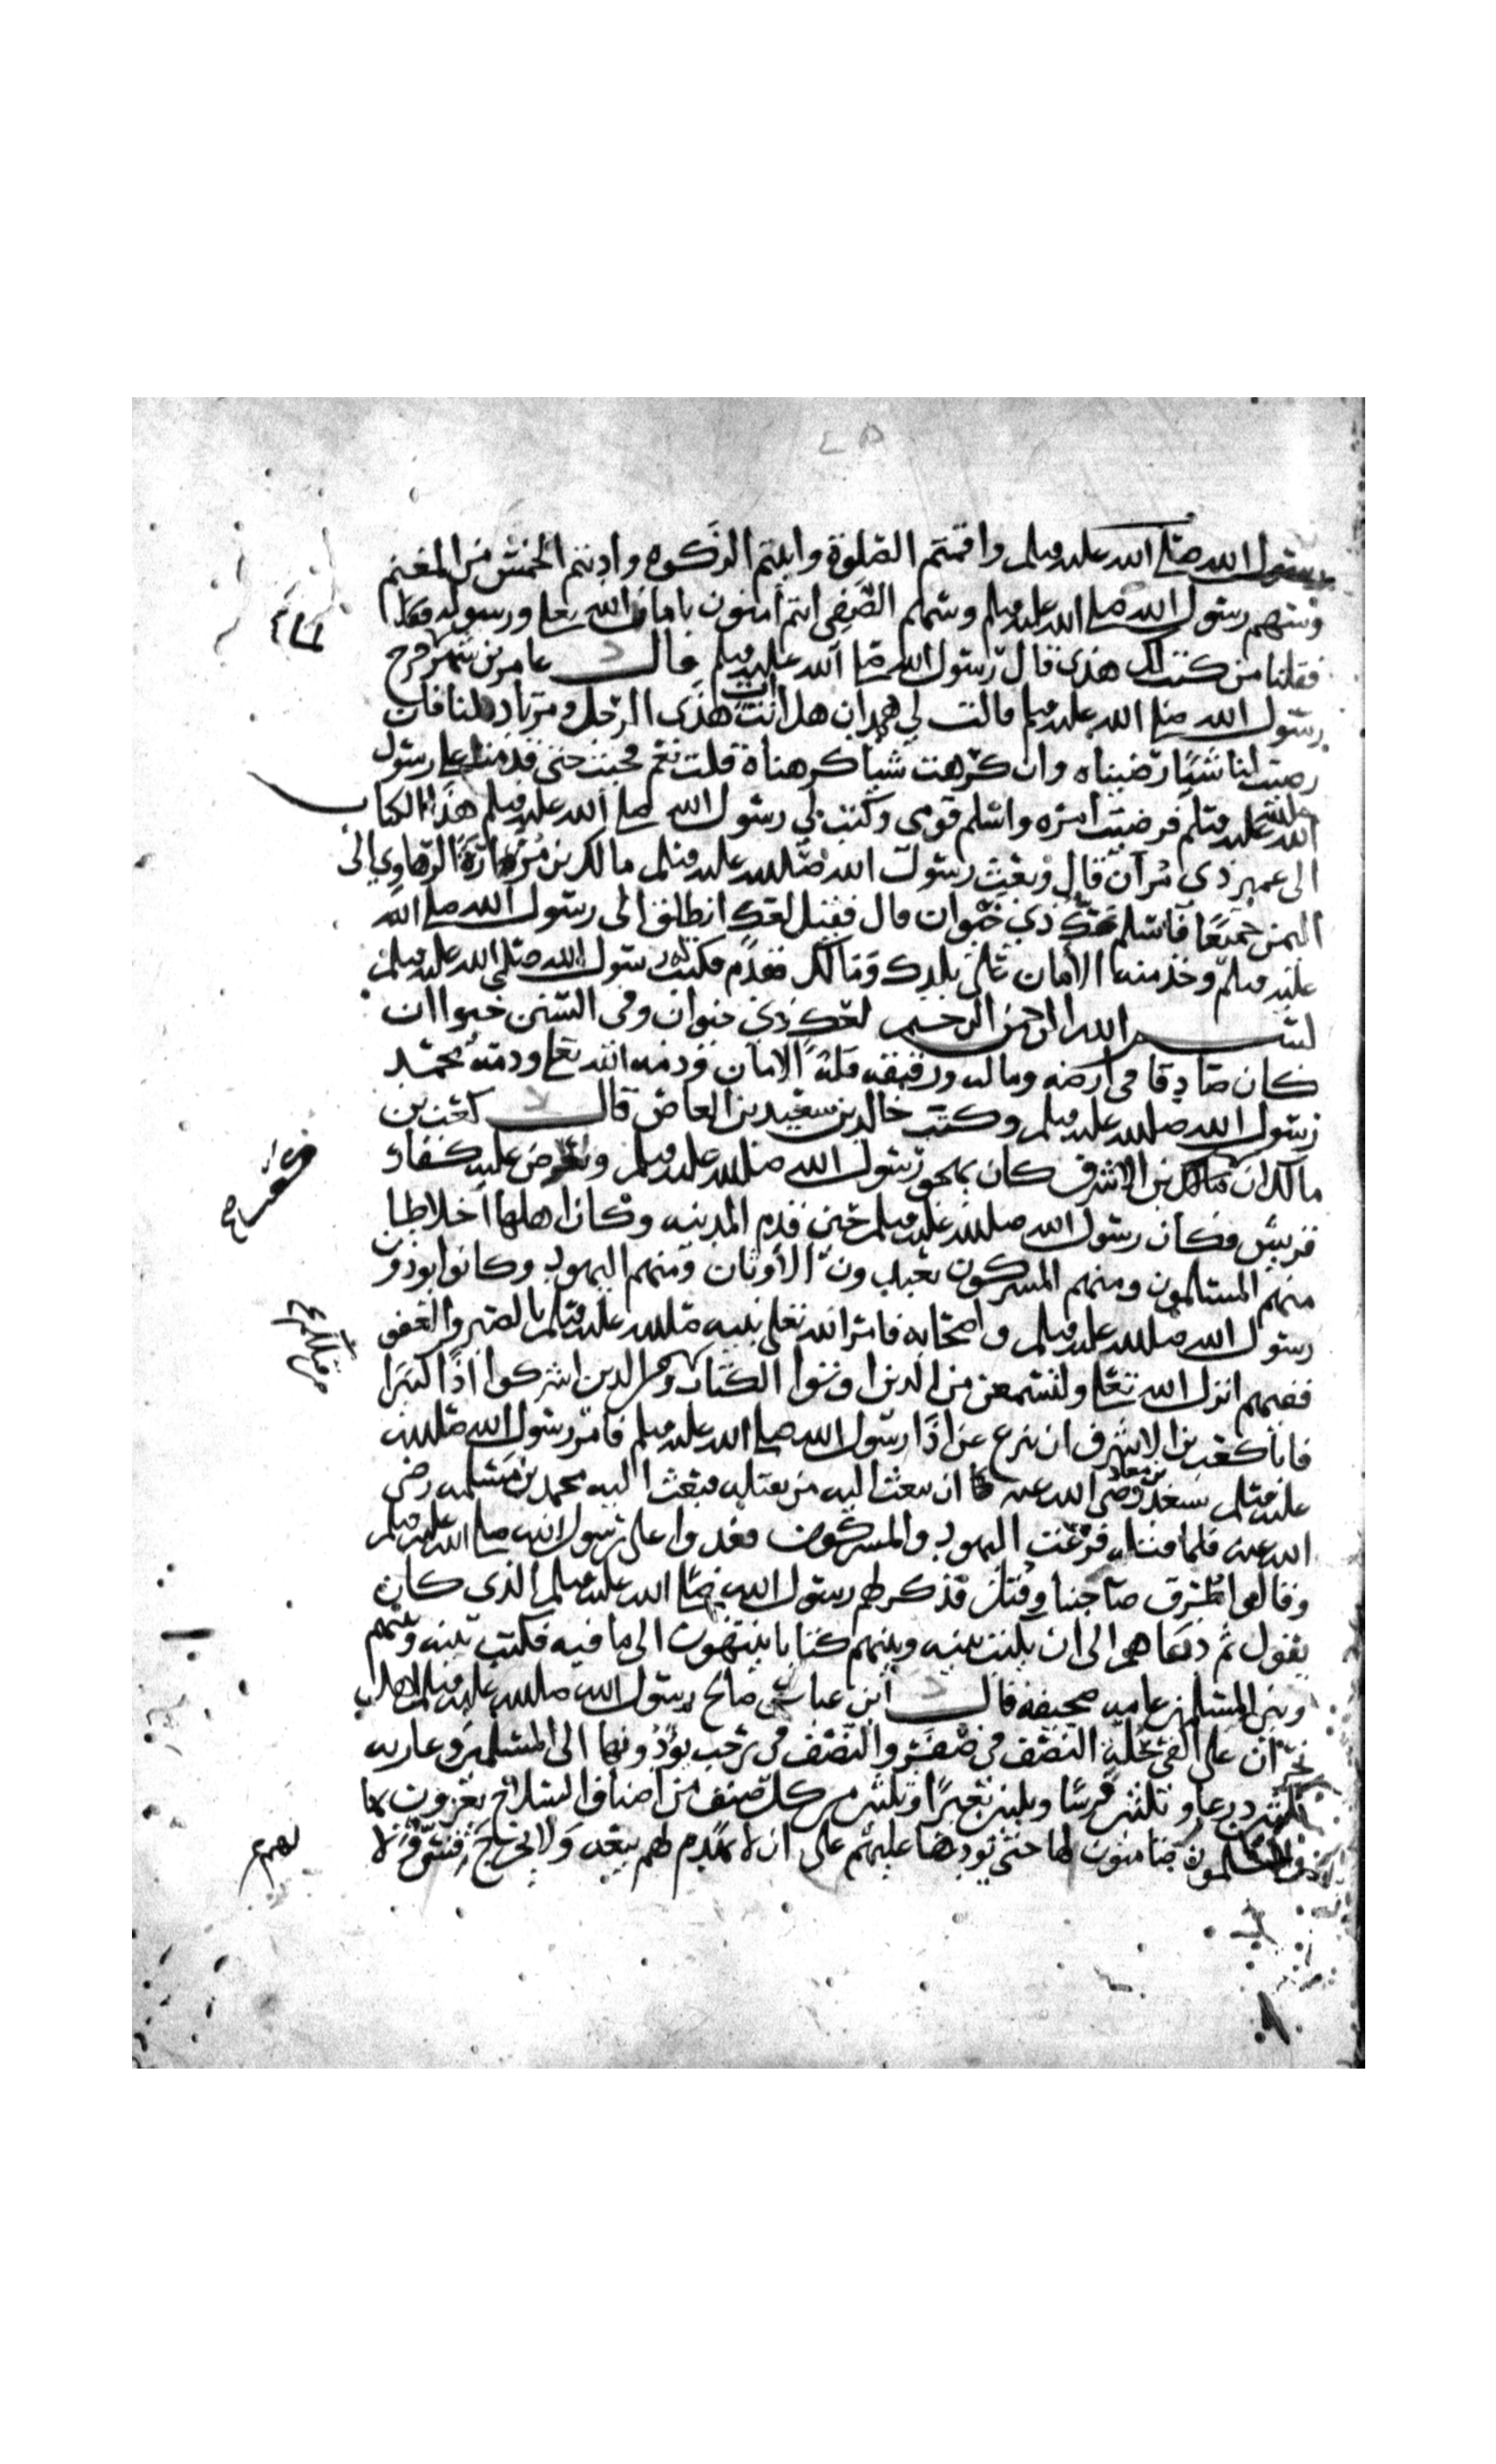 رسول الله صلى الله عليه وسلم واقمتم الصلوة واتيتم الزكوة واديتم الخمس من المغنم
وسهم رسول الله صلى الله عليه وسلم وسهم الصفي انتم آمنون بامان الله تعالى ورسوله
فقلنا من كتب لك هذى قال رسول الله صلى الله عليه وسلم قال عامر بن شهر خرج
رسول الله صلى الله عليه وسلم فقالت لي همدان هل انت آت هذى الرجل ومرتاد لنا فان
رضيت لنا شيا رضيناه وان كرهت شيا كرهناه قلت نعم فجيت حتى قدمت على رسول
الله صلى الله عليه وسلم فرضيت امره واسلم قومى وكتب لي رسول الله صلى الله عليه وسلم هذا الكتاب
الى عمير ذى مران قال وبعث رسول الله صلى الله عليه وسلم مالك بن مرارة الرهاوي الى
اليمن جميعا فاسلم عك ذي خيوان قال فقيل لعك انطلق الى رسول الله صلى الله
عليه وسلم وخذ منه الأمان على بلدك ومالك فقدم فكتب له رسول الله صلى الله عليه وسلم
بسم الله الرحمن الرحيم لعك ذي خيوان وفى السنن خيوا ان
كان صادقا في ارضه وماله ورقيقه فله الامان وذمة الله تعالى وذمة محمد
رسول الله صلى الله عليه وسلم وكتب خالد بن سعيد بن العاص قال كعب بن
مالك ان بن الاشرف كان يهجو رسول الله صلى الله عليه وسلم ويحرض عليه كفار
قريش وكان رسول الله صلى الله عليه وسلم حين قدم المدينه وكان اهلها اخلاطا
منهم المسلمون ومنهم المسركون يعبدون الأوثان ومنهم اليهود وكانوا يوذون
رسول الله صلى الله عليه وسلم واصحابه فامر الله تعلى نبيه صلى الله عليه وسلم بالصبر والعفو
ففيهم انزل الله تعالى ولتسمعن من الذين اوتوا الكتاب ومن الذين اشركوا اذا كثيرا
فابا كعب بن الاشرف ان ينزع عن اذا رسول الله صلى الله عليه وسلم فامر رسول الله صلى الله
عليه وسلم سعد بن معاذ رضى الله عنه ان يبعث اليه من يقتله فبعث اليه محمد بن مسلمه رضى
الله عنه فلما قتله فزعت اليهود والمسركون فغدوا على رسول الله صلى الله عليه وسلم
وقالوا طرق صاحبنا وقتل فذكر لهم رسول الله صلى الله عليه وسلم الذى كان
يقول ثم دعاهم الى ان يكتب بينه وبينهم كتابا ينتهون الى ما فيه فكتب بينه وبينهم
وبين المسلمين عامه صحيفه قال ابن عباس صالح رسول الله صلى الله عليه وسلم اهل
نجران على الفى حلة النصف فى صفر والنصف فى رجب يؤدونها الى المسلمين وعاريه
ثلثين درعا وثلثين فرسا وثلثين بعيرا وثلثين من كل صنف من اصناف السلاح يغزون بها
والمسلمون ضامنون لها حتى يودوها عليهم على ان لا تهدم لهم بيعه ولا يخرج قس ولا